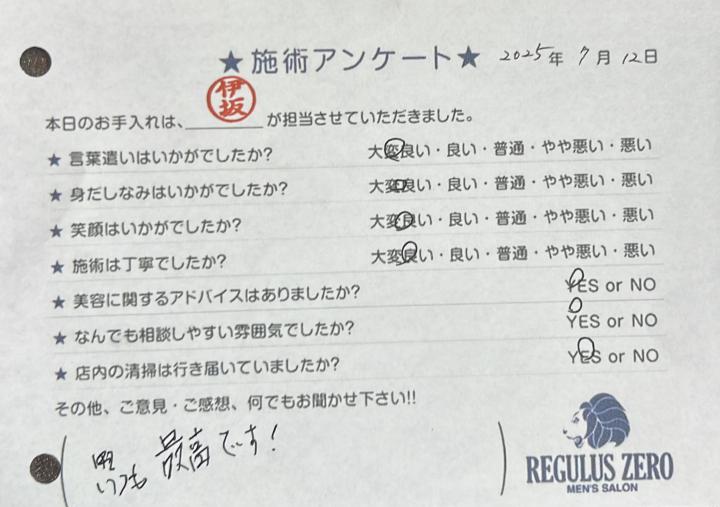 ★施術アンケート★ 2025年 7月 12日
伊坂
本日のお手入れは、 が担当させていただきました。
★ 言葉遣いはいかがでしたか? 大変良い・良い・普通・やや悪い・悪い
★ 身だしなみはいかがでしたか? 大変良い・良い・普通・やや悪い・悪い
★ 笑顔はいかがでしたか? 大変良い・良い・普通・やや悪い・悪い
★ 施術は丁寧でしたか? 大変良い・良い・普通・やや悪い・悪い
★ 美容に関するアドバイスはありましたか? YES or NO
★ なんでも相談しやすい雰囲気でしたか? YES or NO
★ 店内の清掃は行き届いていましたか? YES or NO
その他、ご意見・ご感想、何でもお聞かせ下さい!!
いつも 最高です!
REGULUS ZERO
MEN'S SALON